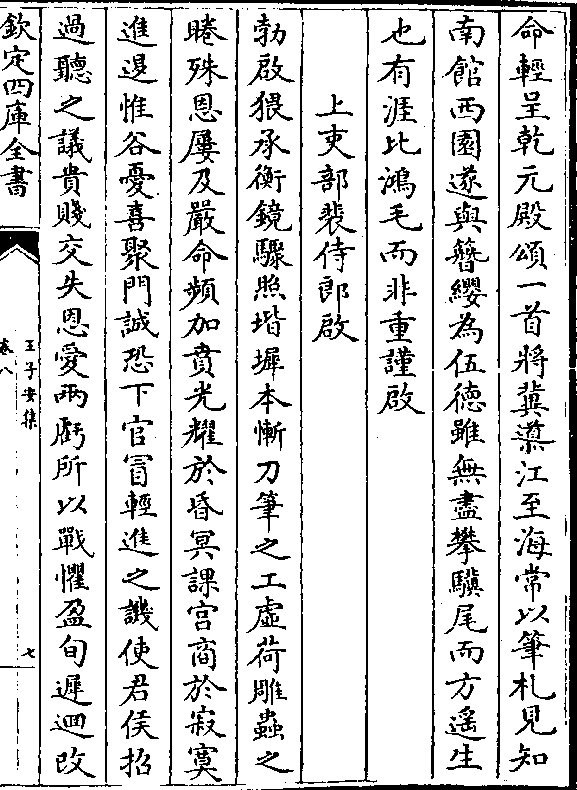 命輕呈乾元殿頌一首將冀導江至海常以筆札見知
南館西園遂與簪纓為伍德雖無盡攀驥尾而方遥生
也有涯比鴻毛而非重謹啟
上吏部裴侍郎啟
勃啟猥承衡鏡驟照堦墀本慚刀筆之工虚荷雕蟲之
睠殊恩屢及嚴命頻加賁光耀於昏冥課宫商於寂寞
進退惟谷憂喜聚門誠恐下官冒輕進之譏使君侯招
過聽之議貴賤交失恩愛兩虧所以戰懼盈旬遲迴改
欽定四庫全書
王子安集
卷八
七